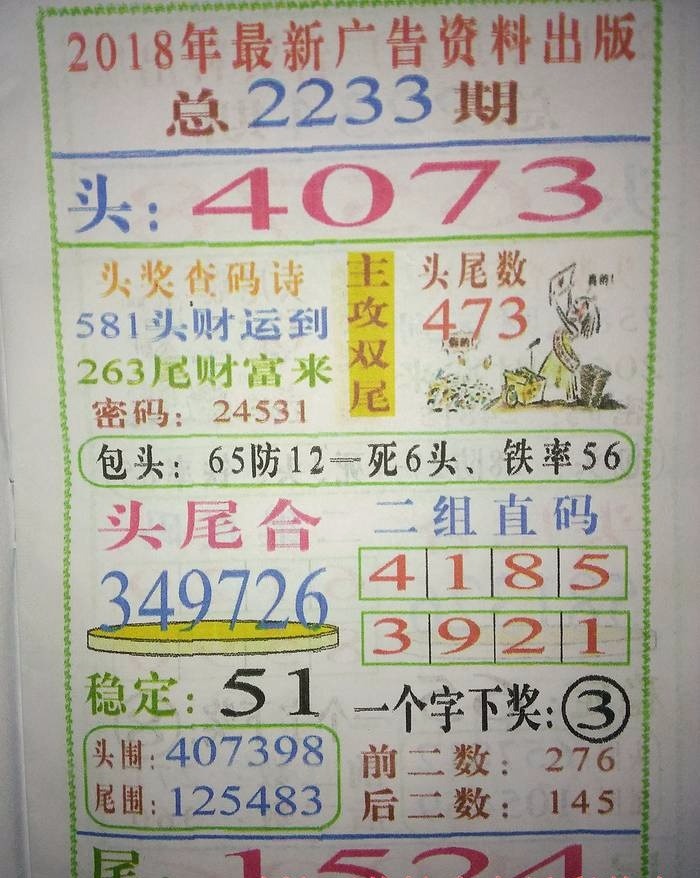 2018年最新广告资料出版
总2233期
头：4073
头奖查码诗
581头财运到
263尾财富来
密码：24531
主攻双尾
头尾数
473
真的！
你的！
包头：65防12—死6头、铁率56
头尾合
349726
二组直码
4185
3921
稳定：51
一个字下奖：③
头围：407398
尾围：125483
前二数：276
后二数：145
尾：1524